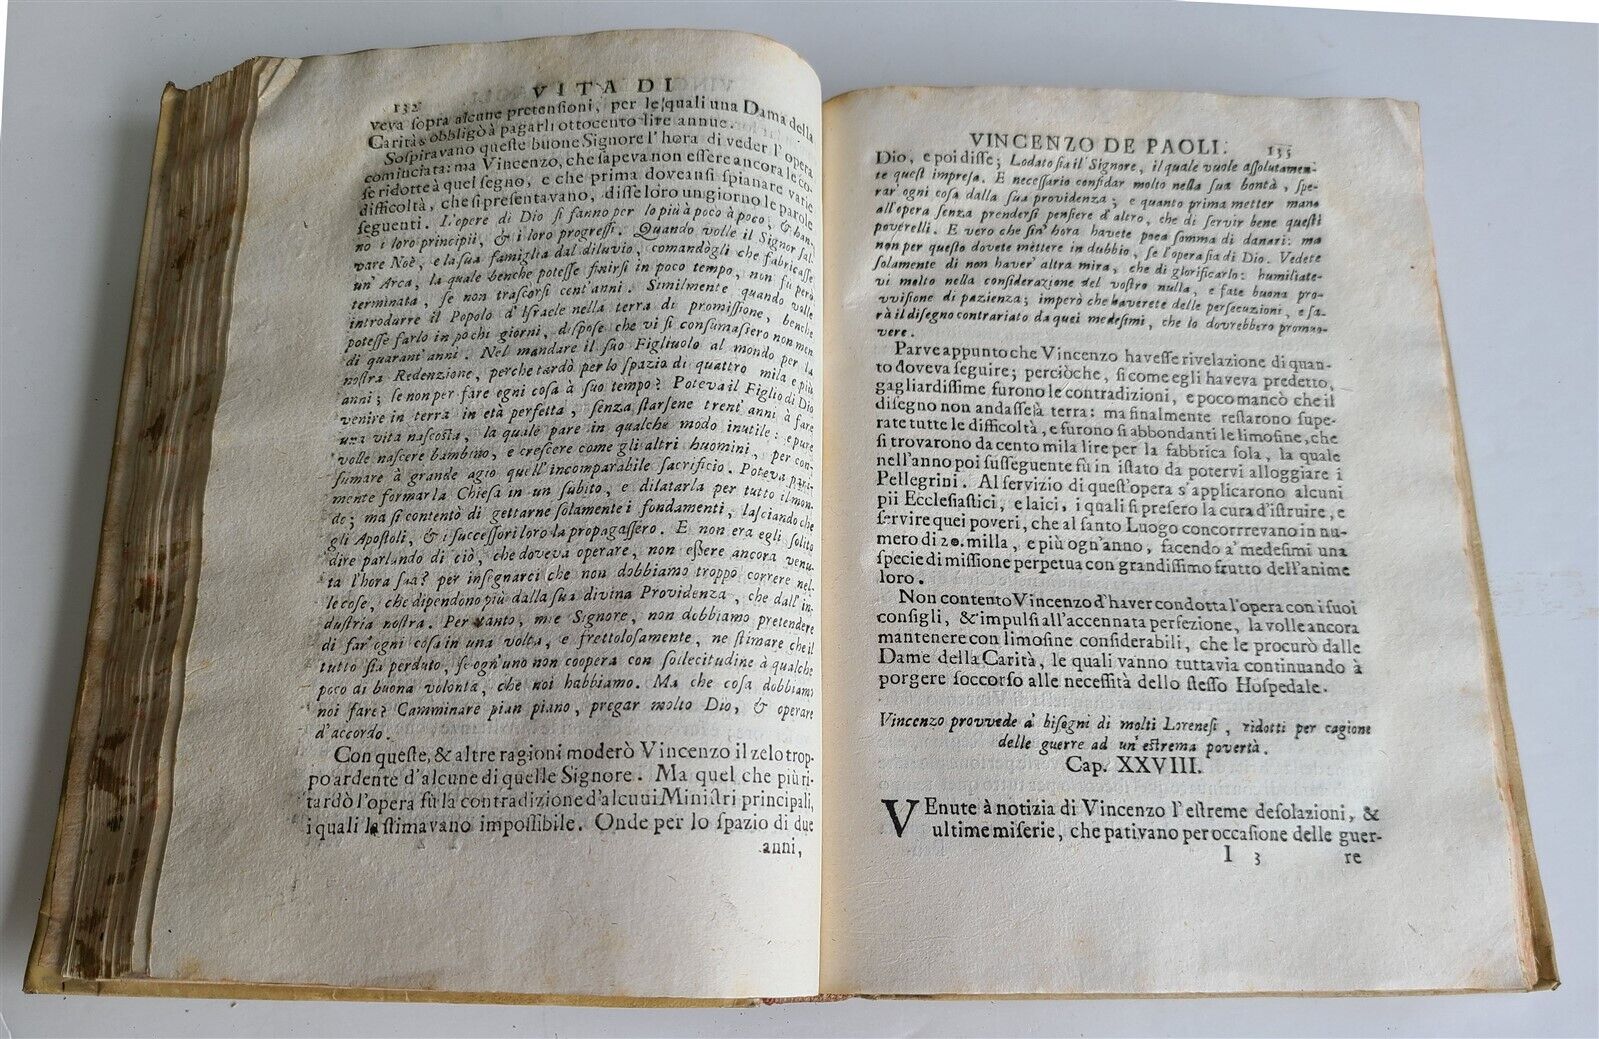 132 VITA DI
veva sopra alcune pretensioni, per le quali una Dama della
Carità s'obbligò à pagarli ottocento lire annue.
Sospiravano queste buone Signore l'hora di veder l'opera
cominciata: ma Vincenzo, che sapeva non essere ancora le co-
se ridotte à quel segno, e che prima doveansi spianare varie
difficoltà, che si presentavano, disse loro un giorno le parole
seguenti. L'opere di Dio si fanno per lo più à poco à poco, & han-
no i loro principii, & i loro progressi. Quando volle il Signor sal-
vare Noè, e la sua famiglia dal diluvio, comandògli che fabricasse
un'Arca, la quale benche potesse finirsi in poco tempo, non fù però
terminata, se non trascorsi cent'anni. Similmente quando volle
introdurre il Popolo d'Israele nella terra di promissione, benche
potesse farlo in pochi giorni, dispose che vi si consumassero non men
di quarant'anni. Nel mandare il suo Figliuolo al mondo per la
nostra Redenzione, perche tardò per lo spazio di quattro mila e più
anni; se non per fare ogni cosa à suo tempo? Poteva il Figlio di Dio
venire in terra in età perfetta, senza starsene trent'anni à fare
una vita nascosta, la quale pare in qualche modo inutile: e pure
volle nascere bambino, e crescere come gli altri huomini, per con-
sumare à grande agio quell'incomparabile sacrificio. Poteva pari-
mente formar la Chiesa in un subito, e dilatarla per tutto il mon-
do; ma si contentò di gettarne solamente i fondamenti, lasciando che
gli Apostoli, & i successori loro la propagassero. E non era egli solito
dire parlando di ciò, che doveva operare, non essere ancora venu-
ta l'hora sua? per insegnarci che non dobbiamo troppo correre nel-
le cose, che dipendono più dalla sua divina Providenza, che dall'in-
dustria nostra. Per tanto, mie Signore, non dobbiamo pretendere
di far'ogni cosa in una volta, e frettolosamente, ne stimare che il
tutto sia perduto, se ogn'uno non coopera con sollecitudine à qualche
poco di buona volontà, che noi habbiamo. Ma che cosa dobbiamo
noi fare? Camminare pian piano, pregar molto Dio, & operare
d'accordo.
Con queste, & altre ragioni moderò Vincenzo il zelo trop-
po ardente d'alcune di quelle Signore. Ma quel che più ri-
tardò l'opera fù la contradizione d'alcuni Ministri principali,
i quali la stimavano impossibile. Onde per lo spazio di due
anni,
VINCENZO DE PAOLI. 135
Dio, e poi disse; Lodato sia il Signore, il quale vuole assolutamen-
te quest'impresa. E necessario confidar molto nella sua bontà, spe-
rar'ogni cosa dalla sua providenza; e quanto prima metter mano
all'opera senza prendersi pensiere d'altro, che di servir bene questi
poverelli. E vero che sin'hora havete poca somma di danari: ma
non per questo dovete mettere in dubbio, se l'opera sia di Dio. Vedete
solamente di non haver'altra mira, che di glorificarlo: humiliate-
vi molto nella considerazione del vostro nulla, e fate buona pro-
vvisione di pazienza; imperò che haverete delle persecuzioni, e sa-
rà il disegno contrariato da quei medesimi, che lo dovrebbero promuo-
vere.
Parve appunto che Vincenzo havesse rivelazione di quan-
to doveva seguire; perciòche, si come egli haveva predetto,
gagliardissime furono le contradizioni, e poco mancò che il
disegno non andasse à terra: ma finalmente restarono supe-
rate tutte le difficoltà, e furono sì abbondanti le limosine, che
si trovarono da cento mila lire per la fabbrica sola, la quale
nell'anno poi susseguente fù in istato da potervi alloggiare i
Pellegrini. Al servizio di quest'opera s'applicarono alcuni
pii Ecclesiastici, e laici, i quali si presero la cura d'istruire, e
servire quei poveri, che al santo Luogo concorrrevano in nu-
mero di 20. milla, e più ogn'anno, facendo a' medesimi una
specie di missione perpetua con grandissimo frutto dell'anime
loro.
Non contento Vincenzo d'haver condotta l'opera con i suoi
consigli, & impulsi all'accennata persezione, la volle ancora
mantenere con limosine considerabili, che le procurò dalle
Dame della Carità, le quali vanno tuttavia continuando à
porgere soccorso alle necessità dello stesso Hospedale.
Vincenzo provvede a' bisogni di molti Lorenesi, ridotti per cagione
delle guerre ad un'estrema povertà.
Cap. XXVIII.
VEnute à notizia di Vincenzo l'estreme desolazioni, &
ultime miserie, che pativano per occasione delle guer-
I 3 re